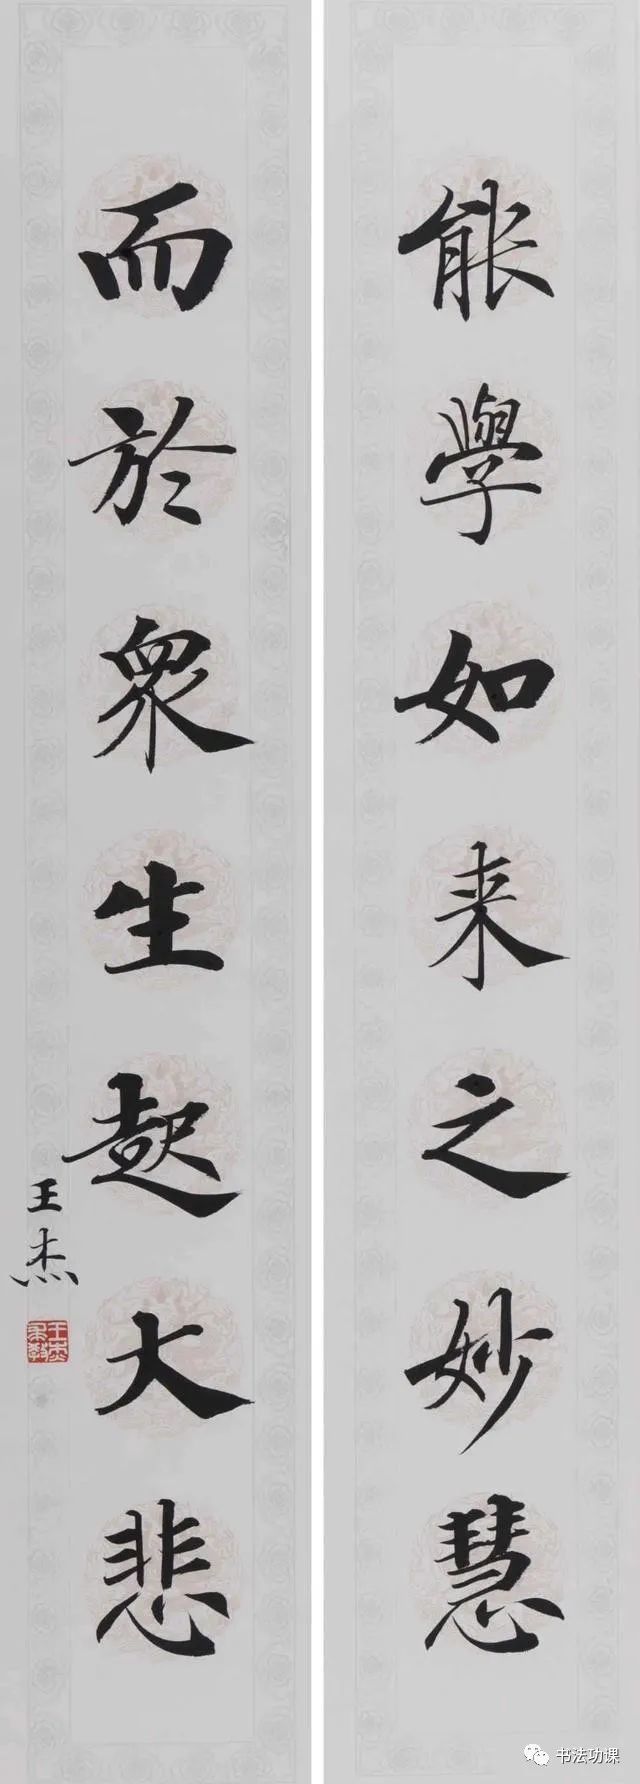 能學如来之妙慧
而於眾生起大悲
王杰
书法功课